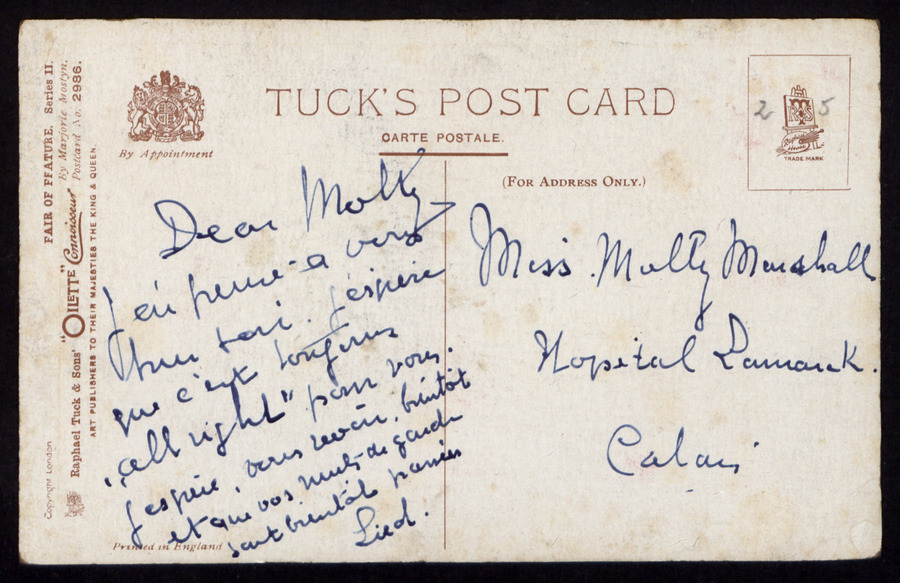 TUCK'S POST CARD
CARTE POSTALE.
By Appointment
(FOR ADDRESS ONLY.)
TRADE MARK
2 5
FAIR OF FEATURE. Series II.
By Marjorie Mostyn.
Postcard No. 2986.
Raphael Tuck & Sons' "OILETTE" Connoisseur
ART PUBLISHERS TO THEIR MAJESTIES THE KING & QUEEN.
Copyright London
Printed in England
Dear Molly
J'ai pensé à vous
hier soir. J'espère
que c'est toujours
"all right" pour vous.
J'espère, vous revoir, bientôt
et que vos nuits de garde
sont bientôt passées
Miss. Molly Marshall
Hopital Lamarck.
Calais